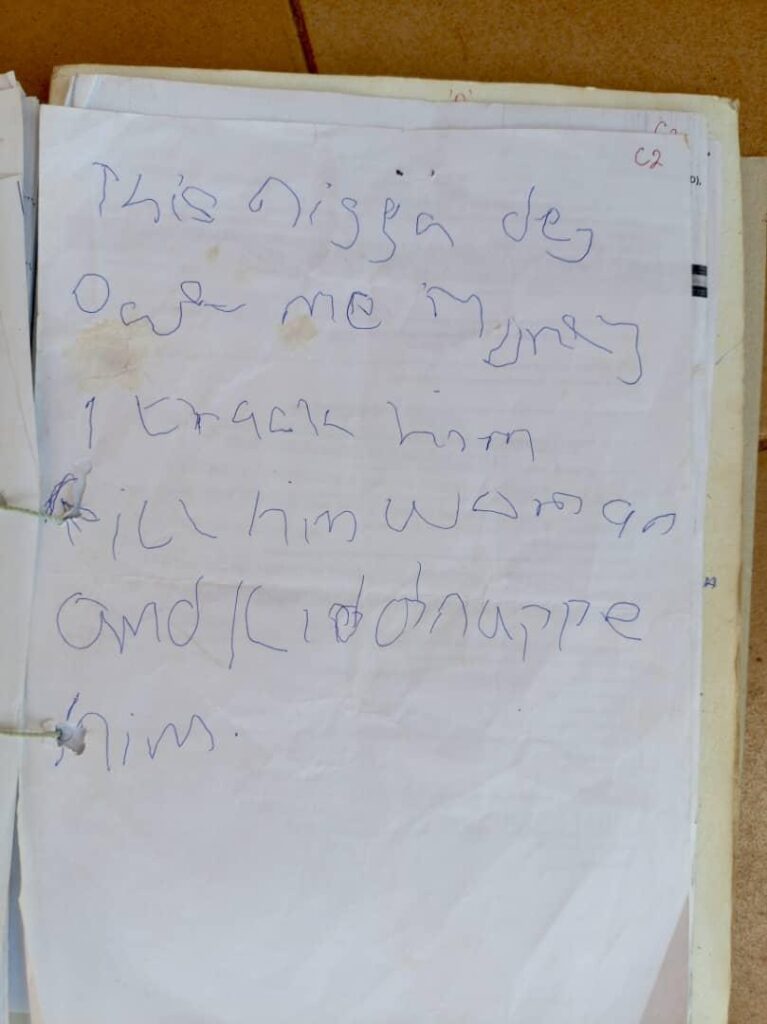 C2
This nigga dey
Owe me Money
I track him
kill him woman
and Kiddnappe
him.